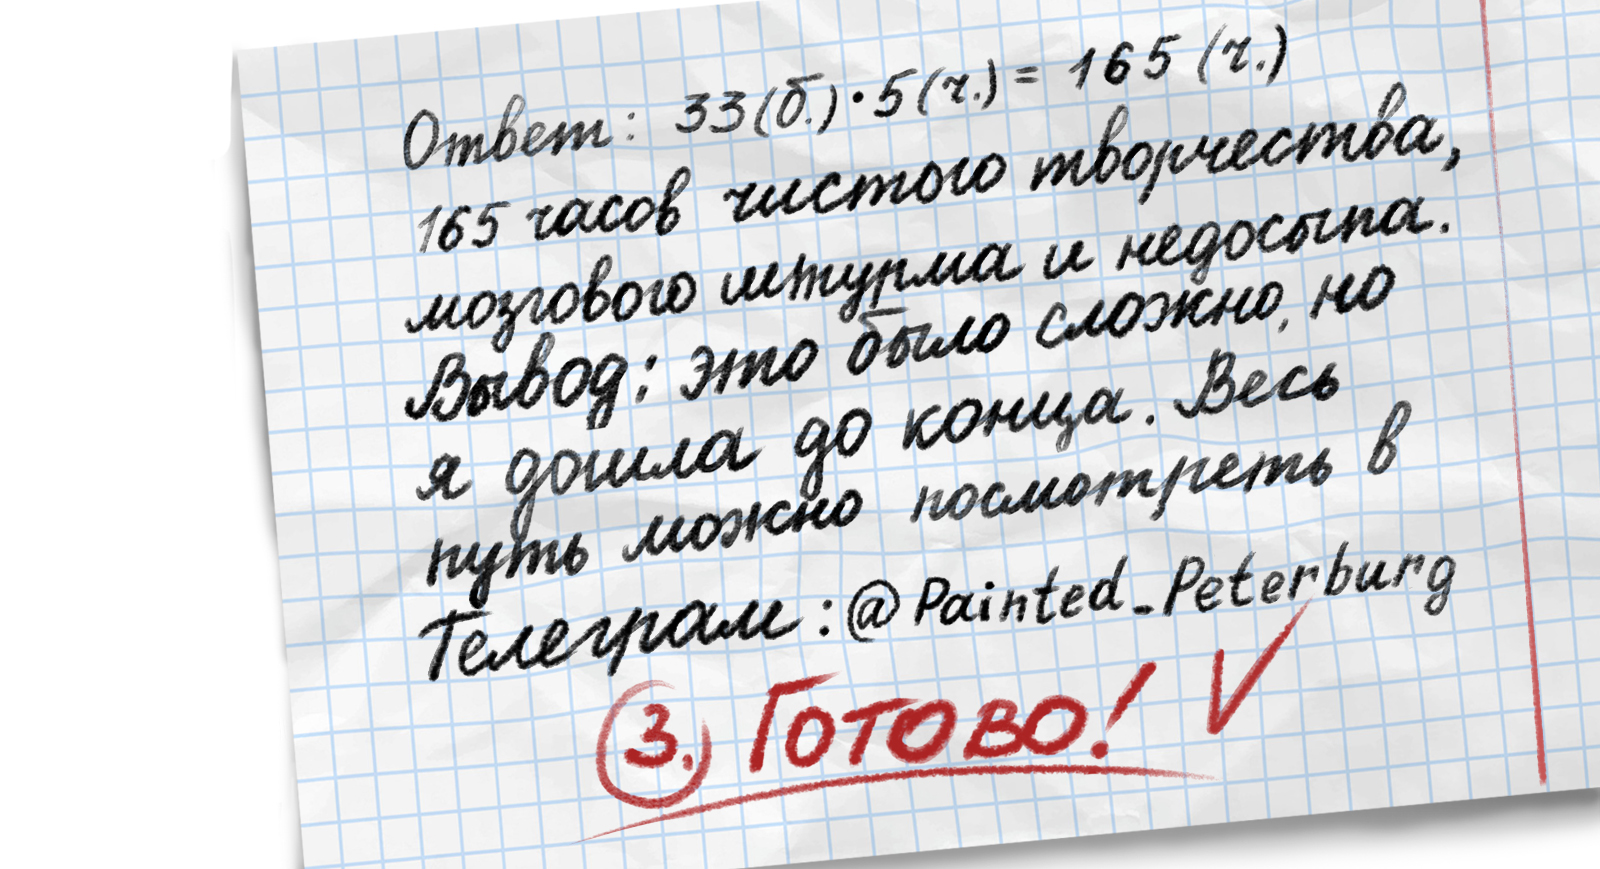 Ответ: 33(б.)·5(ч.) = 165 (ч.)
165 часов чистого творчества,
мозгового штурма и недосыпа.
Вывод: это было сложно, но
я дошла до конца. Весь
путь можно посмотреть в
Телеграм: @Painted_Peterburg
3. Готово! V